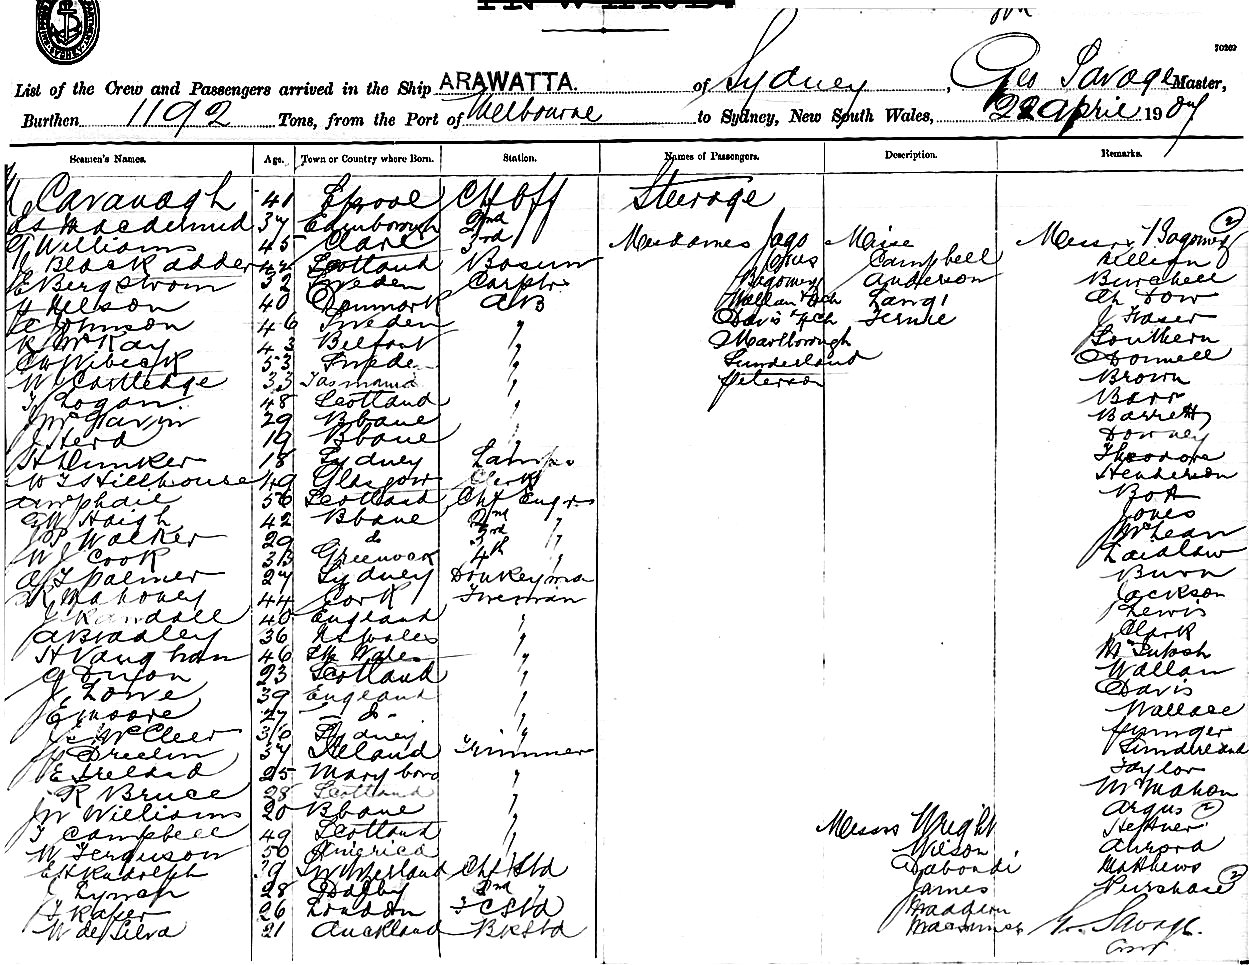 70202
List of the Crew and Passengers arrived in the Ship ARAWATTA. of Sydney, Geo Savage Master,
Burthen 1192 Tons, from the Port of Melbourne to Sydney, New South Wales, 22 April 190
Seamen's Names. Age. Town or Country where Born. Station. Names of Passengers. Description. Remarks.
Cavanagh 41 L'pool Ch Off Steerage
Macdermid 37 Edinborough 2nd
G Williams 45 Clare 3rd Mesdames Jago Messrs
J Blackadder Scotland Bosun Campbell Killeen
E Bergstrom 32 Sweden Carptr Bagomey Anderson Burchell
H Nelson 40 Denmark AB Lang Ah Dow
Johnson 46 Sweden " Davis Fernie J Fraser
R McKay 43 Belfast " Marlborough Southern
C Wibeck 53 Sweden " Sunderland O'Donnell
W Cartledge 33 Tasmania " Peterson Brown
T Logan 48 Scotland " Barr
J McGavin 29 Bbane " Barrett
J Herd 19 Bbane Downey
H Dunker 18 Sydney Lamps Theodore
W T Stillhouse 49 Glasgow Clerk Henderson
McPhail 56 Scotland Chf Engr
G W Haigh 42 Bbane 2nd " Jones
J P Walker 29 do 3rd " McLean
W J Cook 33 Greenock 4th " Laidlaw
A T Palmer 27 Sydney Donkeyman Burn
R Mahoney 44 Cork Fireman Jackson
J Randall 40 England " Lewis
A Bradley 36 NS Wales " Clark
H Vaughan 46 Wales " McIntosh
G Dixon 23 Scotland " Wallam
J Lowe 39 England " Davis
E Moore 27 - do - " Wallace
J McCleer 36 Sydney "
J Breelin 37 Ireland Trimmer Sunderland
E Ireland 25 Maryboro " Taylor
R Bruce 28 Scotland " McMahon
J W Williams 20 Bbane " Argus 2
T Campbell 49 Scotland " Messrs Wright Heffner
W Ferguson 56 America " Wilson Ahrora
E H Rudolph 39 Switherland Chf Std Dabondi Mathews
J Lynch 28 Dalby 2nd " James Purshase 2
T Kaper 26 London F C Std Maddern
W de Silva 21 Auckland Bk Std Geo. Savage.